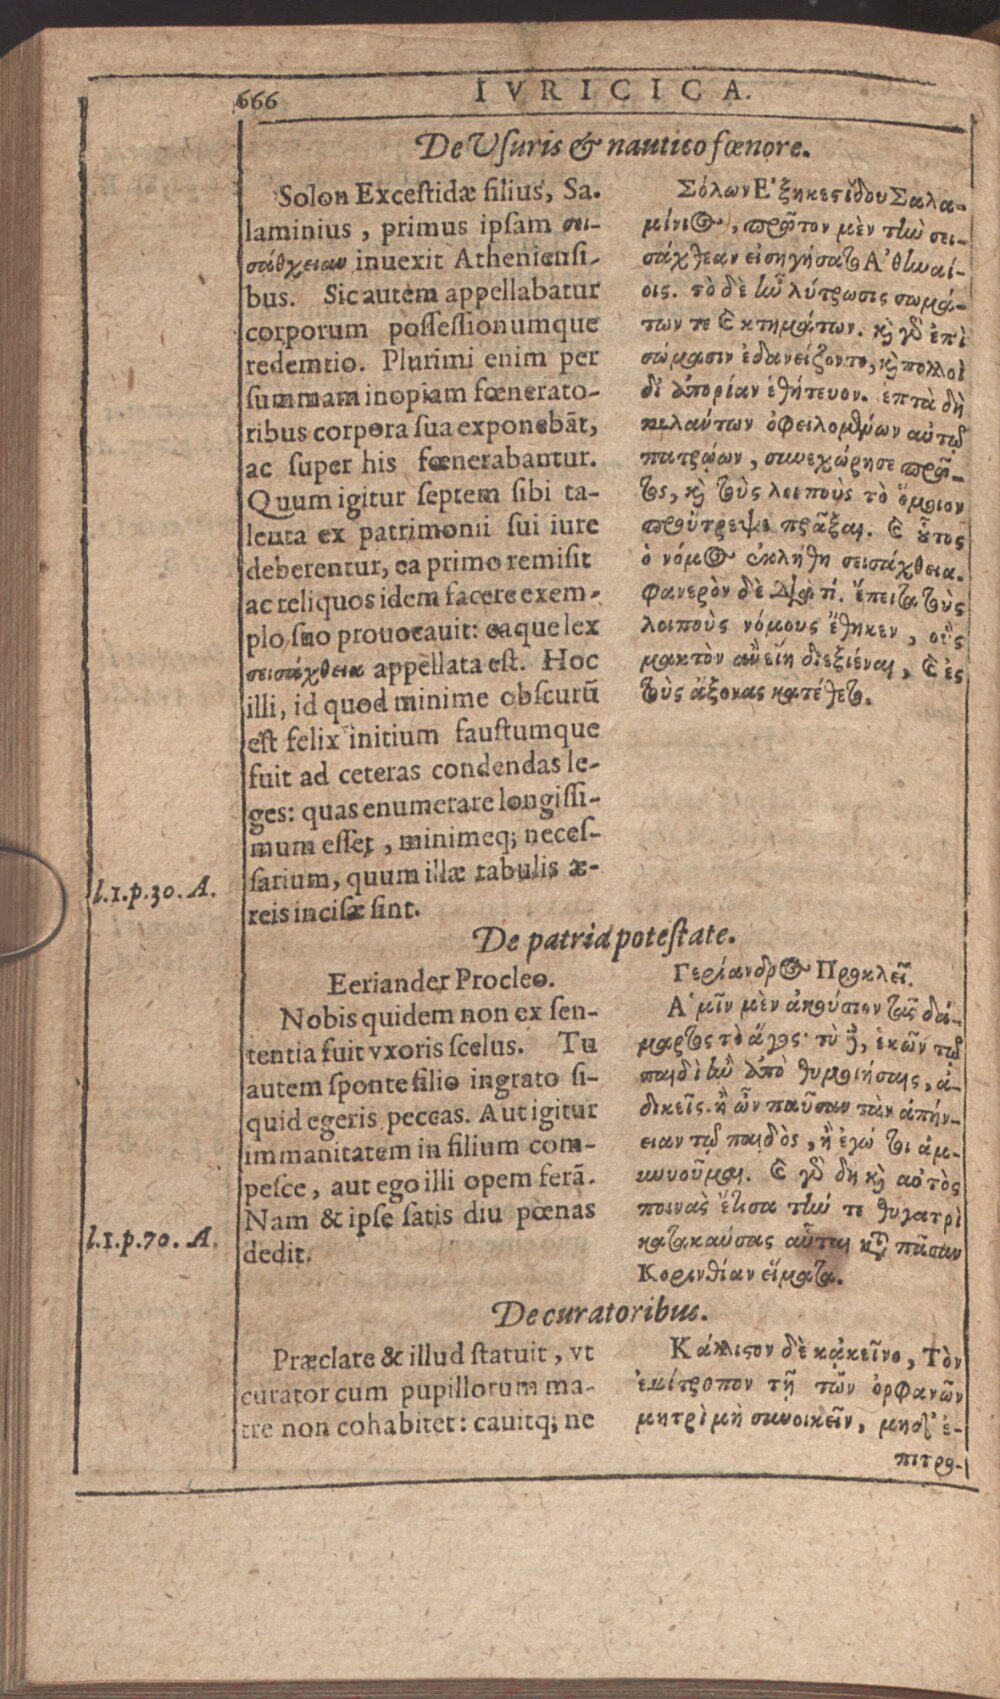 666
IVRICICA.
De Vſuris & nautico fœnore.
Solon Exceſtidæ filius, Sa-
laminius, primus ipſam σει-
σάθχειαν inuexit Athenienſi-
bus. Sic autem appellabatur
corporum poſſeſſionumque
redemtio. Plurimi enim per
ſummam inopiam fœnerato-
ribus corpora ſua exponebāt,
ac ſuper his fœnerabantur.
Quum igitur ſeptem ſibi ta-
leuta ex patrimonii ſui iure
deberentur, ea primo remiſit
ac reliquos idem facere exem-
plo ſuo prouocauit: eaque lex
σεισάχθεια appellata eſt. Hoc
illi, id quod minime obſcurū
eſt felix initium fauſtumque
fuit ad ceteras condendas le-
ges: quas enumerare longiſſi-
mum eſſet, minimeq; neceſ-
ſarium, quum illæ tabulis æ-
reis inciſæ ſint.
Σόλων Ἐξηκεςίδου Σαλα-
μίνι@, πρῶτον μὲν τὴν σει-
σάχθεαν εἰσηγήσατο Ἀθηναί-
οις. τὸ δὲ ἦν λύτρωσις σωμά-
των τε & κτημάτων. κὶ γὸ ἐπὶ
σώμασιν ἐδανείζοντο, κὶ πολλοὶ
δἰ ἀπορίαν ἐθήτευον. ἑπτὰ δὴ
ταλαύτων ὀφειλομένων αὐτῷ
πατρῴων, συνεχώρησε πρῶ-
τος, κὶ τοὺς λειποὺς τὸ ὅμοιον
προὔτρεψε πρᾶξαι. & οὗτος
ὁ νόμος ἐκλήθη σεισάχθεια.
Φανερὸν δὲ διὰ τί. ἔπειτα τοὺς
λοιποὺς νόμους ἔθηκεν, οὓς
μακτὸν ἂν εἴη διεξιέναι, & ἐς
τοὺς ἄξονας κατέθετο.
l.1.p.30.A.
De patria poteſtate.
Eeriander Procleo.
Nobis quidem non ex ſen-
tentia fuit vxoris ſcelus. Tu
autem ſponte filio ingrato ſi-
quid egeris peccas. Aut igitur
immanitatem in filium com-
peſce, aut ego illi opem ferā.
Nam & ipſe ſatis diu pœnas
dedit.
Γερίανδρος Προκλεῖ.
Ἀ μῖν μὲν ἀκούσιον τᾶς δά-
μαρτος τὸ ἄγος· τὺ δὲ, ἑκῶν τῷ
παιδὶ ἂν ἀπὸ θυμοιήσαις, ἀ-
δικεῖς. ἢ ὦν παῦσαν τὰν ἀπήν-
ειαν τῷ παιδὸς, ἢ ἐγώ τοι ἀμ-
υνοῦμαι. & γὸ δὴ κὶ αὐτὸς
ποινὰς ἔτισα τὴν τε θυγατρὶ
κατακαύσας αὖται κτ πᾶσαν
Κορινθίαν εἵματα.
l.1.p.70.A.
De curatoribus.
Præclare & illud ſtatuit, vt
curator cum pupillorum ma-
tre non cohabitet: cauitq; ne
Κάλλιςον δὲ κἀκεῖνο, Τὸν
ἐπίτροπον τῇ τῶν ὀρφανῶν
μητρὶ μὴ συνοικεῖν, μηδ' ἐ-
πιτρο-